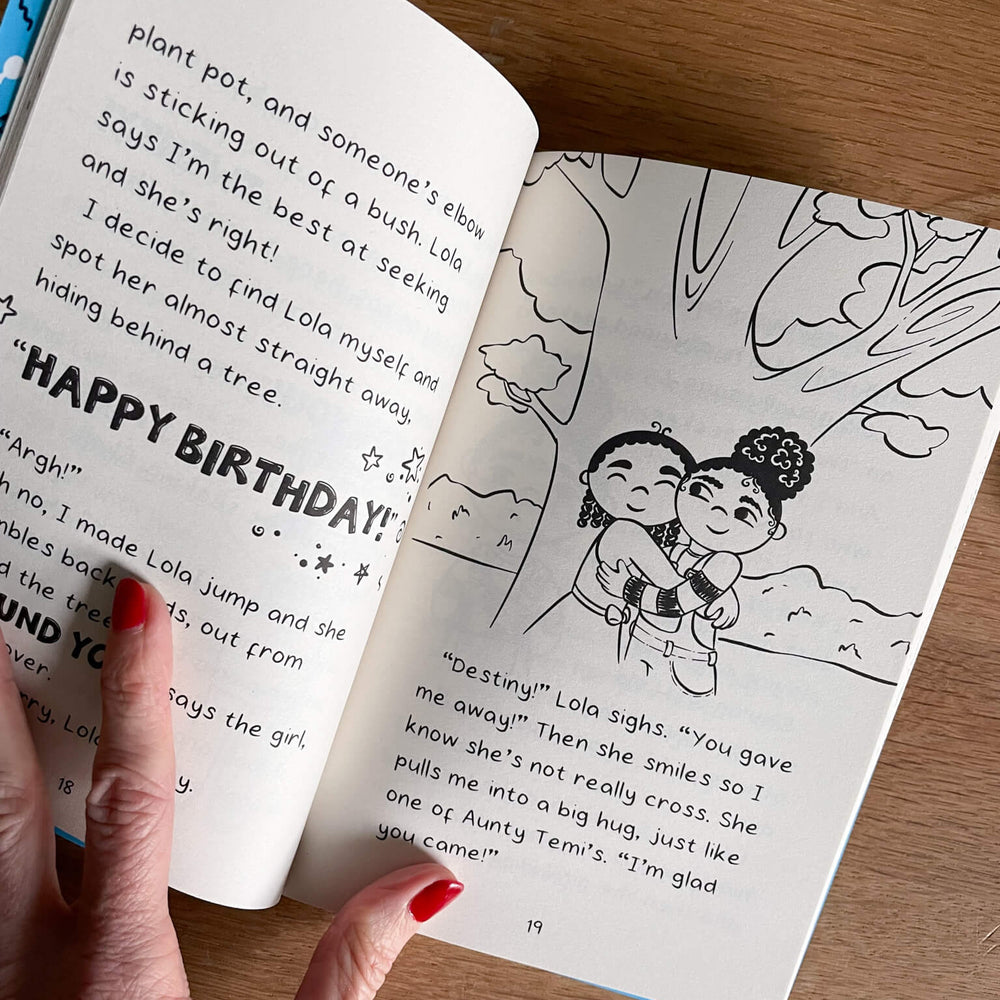 plant pot, and someone's elbow
is sticking out of a bush. Lola
says I'm the best at seeking
and she's right!
I decide to find Lola myself and
spot her almost straight away,
hiding behind a tree.
“HAPPY BIRTHDAY!”
“Argh!”
no, I made Lola jump and she
back ds, out from
the tree
UND YO
over.
says the girl,
Lola
y.
18
“Destiny!” Lola sighs. “You gave
me away!” Then she smiles so I
know she's not really cross. She
pulls me into a big hug, just like
one of Aunty Temi's. “I'm glad
you came!”
19